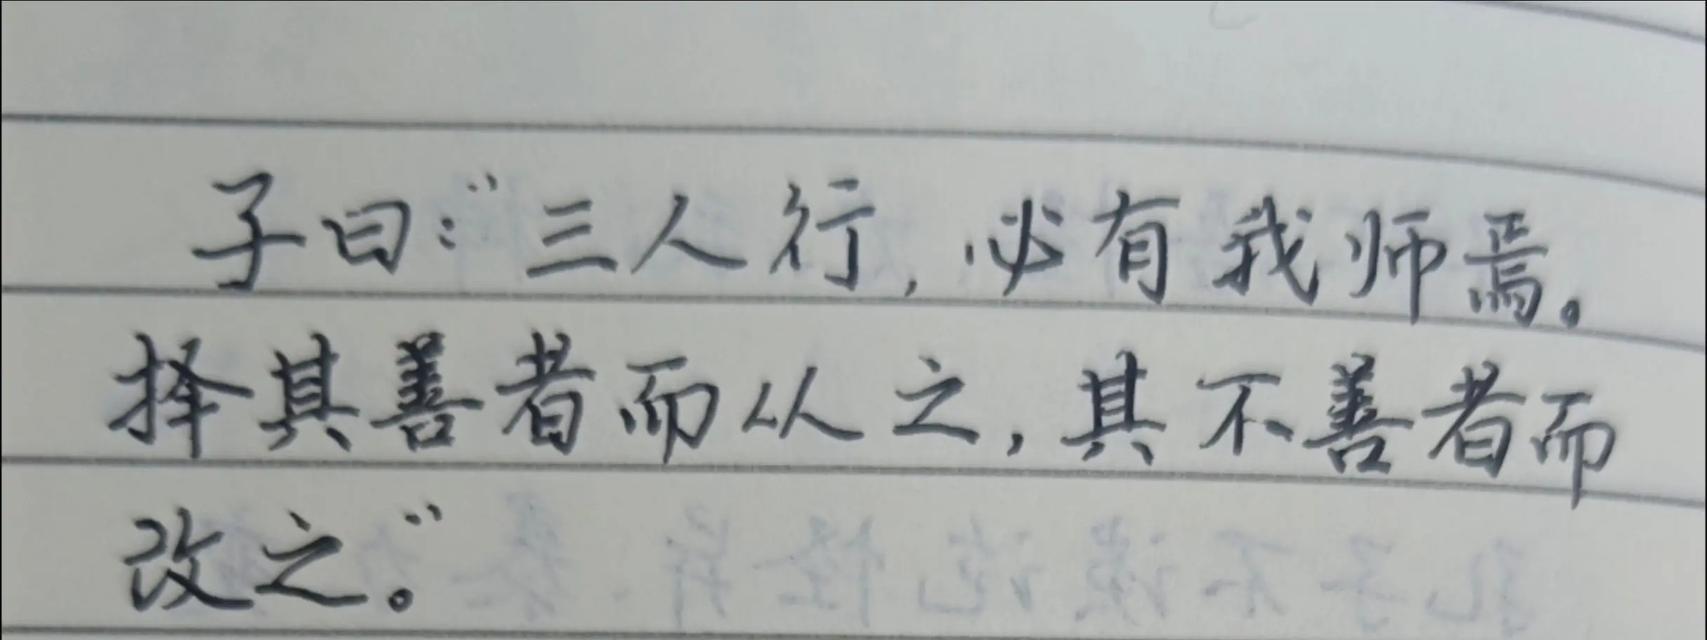 子曰：“三人行，必有我师焉。
择其善者而从之，其不善者而
改之。”